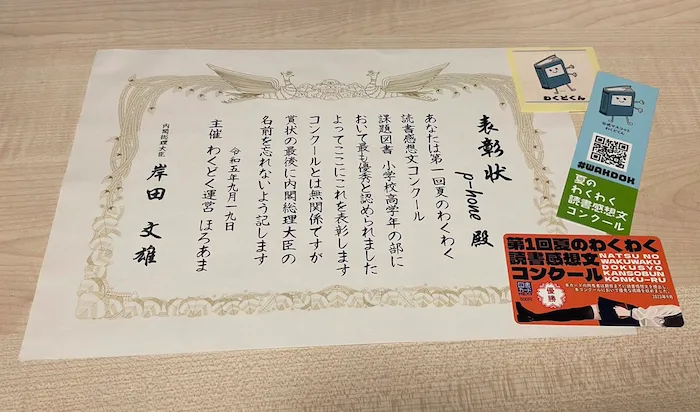 表彰状
p-hone 殿
あなたは第一回夏のわくわく
読書感想文コンクール
課題図書 小学校高学年の部に
おいて最も優秀と認められました
よってここにこれを表彰します
コンクールとは無関係ですが
賞状の最後に内閣総理大臣の
名前を忘れないよう記します
令和五年九月一九日
主催 わくどく運営 ほろあま
内閣総理大臣 岸田 文雄
わくどくん
#WAKDOK
夏の
わくわく
読書感想文
コンクール
第1回夏のわくわく
読書感想文
コンクール
NATSU NO
WAKUWAKU
DOKUSYO
KANSOBUN
KONKU-RU
図書
カード
優勝
2023年9月